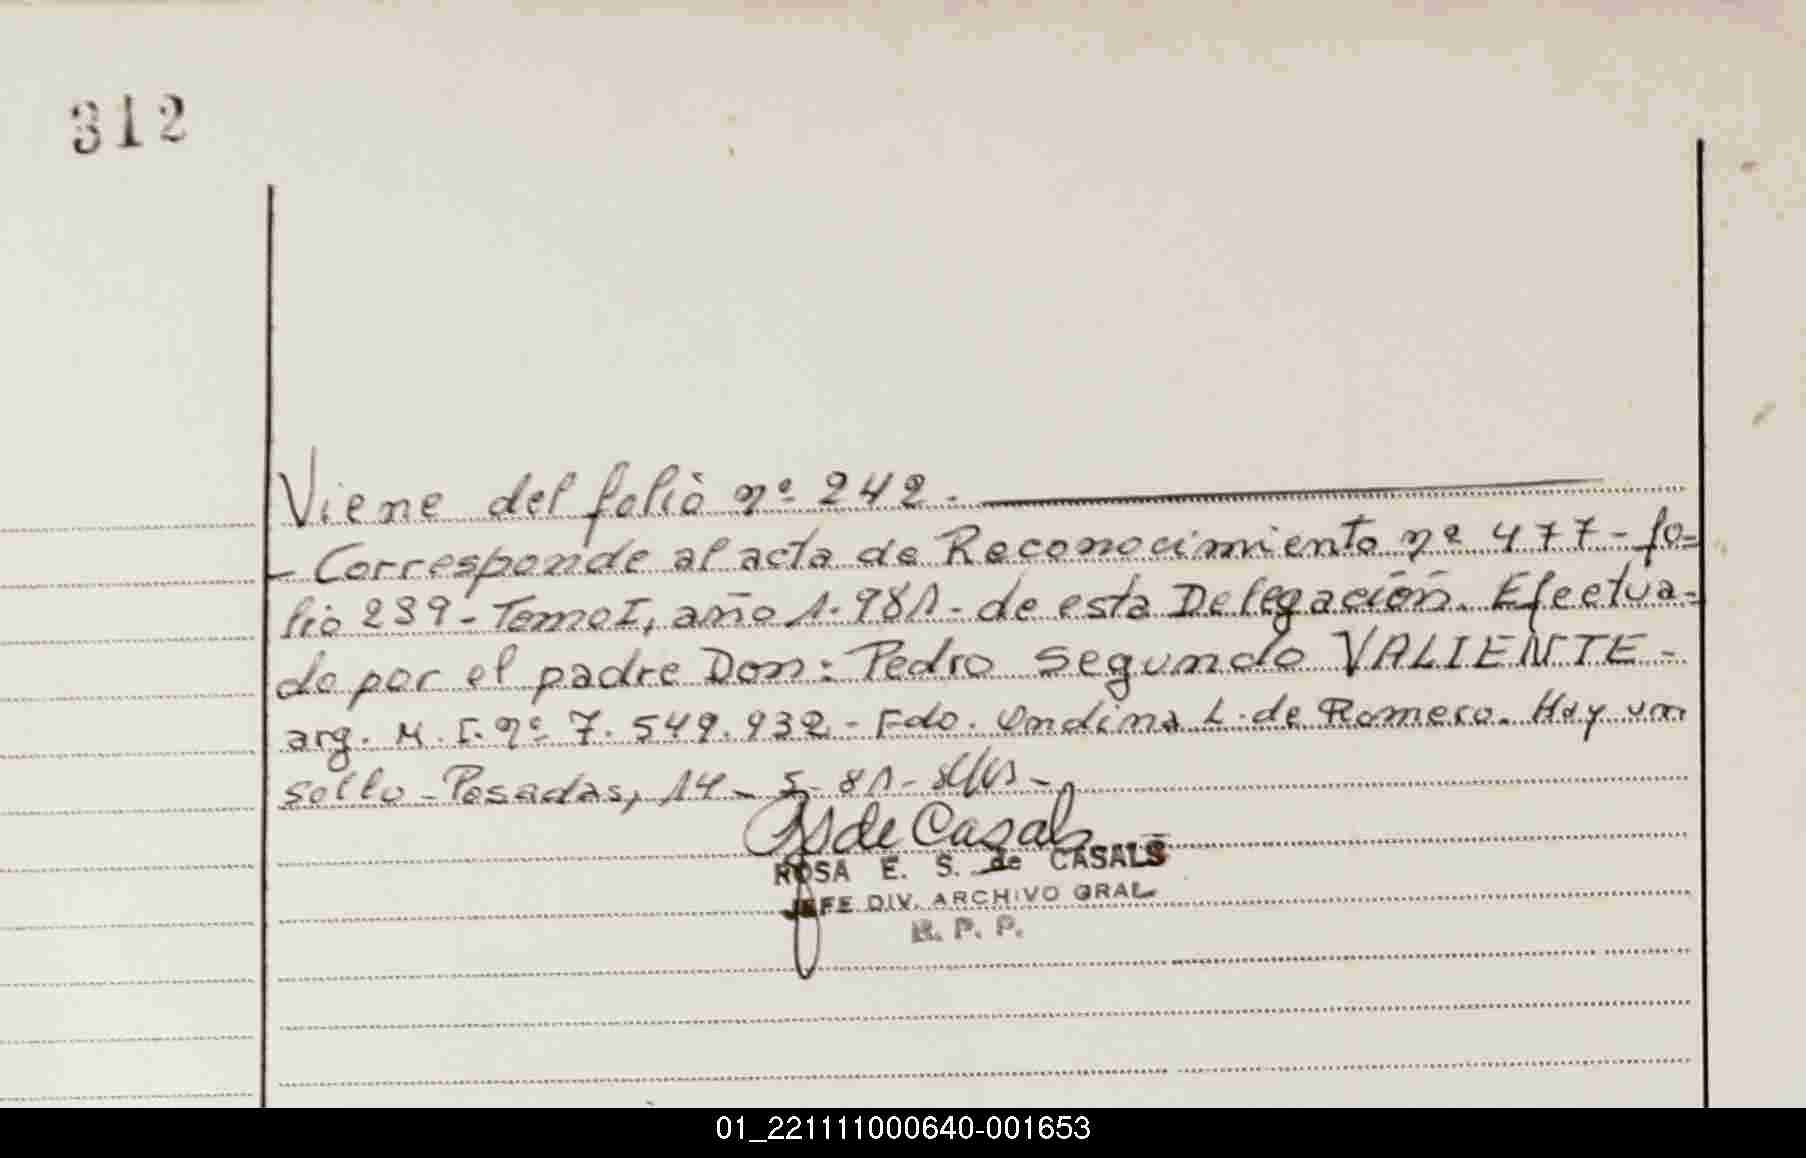 312
Viene del folio nº 242.
- Corresponde al acta de Reconocimiento nº 477- fo=
lio 239- Tomo I, año 1.981- de esta Delegación. Efectua=
do por el padre Don: Pedro Segundo VALIENTE -
arg. M. I. nº 7.549.932- Fdo. Ondina L. de Romero. Hay un
sello - Posadas, 14- 5- 81-
de Casals
ROSA E. S. de CASALS
JEFE DIV. ARCHIVO GRAL
R. P. P.
01_221111000640-001653